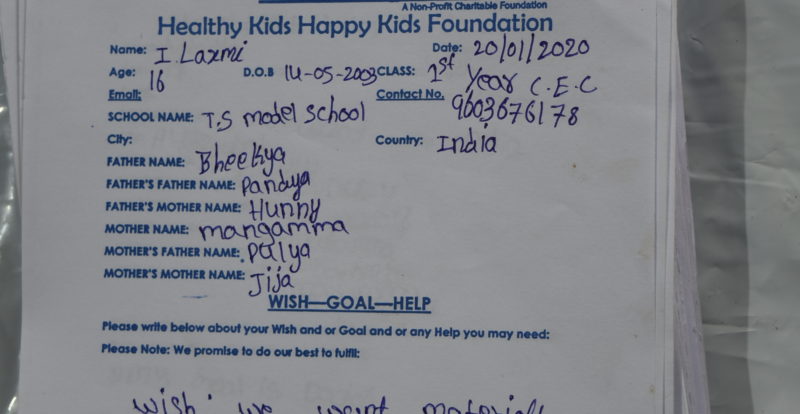 A Non-Profit Charitable Foundation
Healthy Kids Happy Kids Foundation
Name: I. Laxmi Date: 20/01/2020
Age: 16 D.O.B 14-05-2003 CLASS: 1st Year C.E.C
Email: Contact No. 9603676178
SCHOOL NAME: T.S model school
City: Country: India
FATHER NAME: Bheekya
FATHER'S FATHER NAME: Pandya
FATHER'S MOTHER NAME: Hunny
MOTHER NAME: mangamma
MOTHER'S FATHER NAME: Palya
MOTHER'S MOTHER NAME: Jija
WISH—GOAL—HELP
Please write below about your Wish and or Goal and or any Help you may need:
Please Note: We promise to do our best to fulfil:
wish: we want